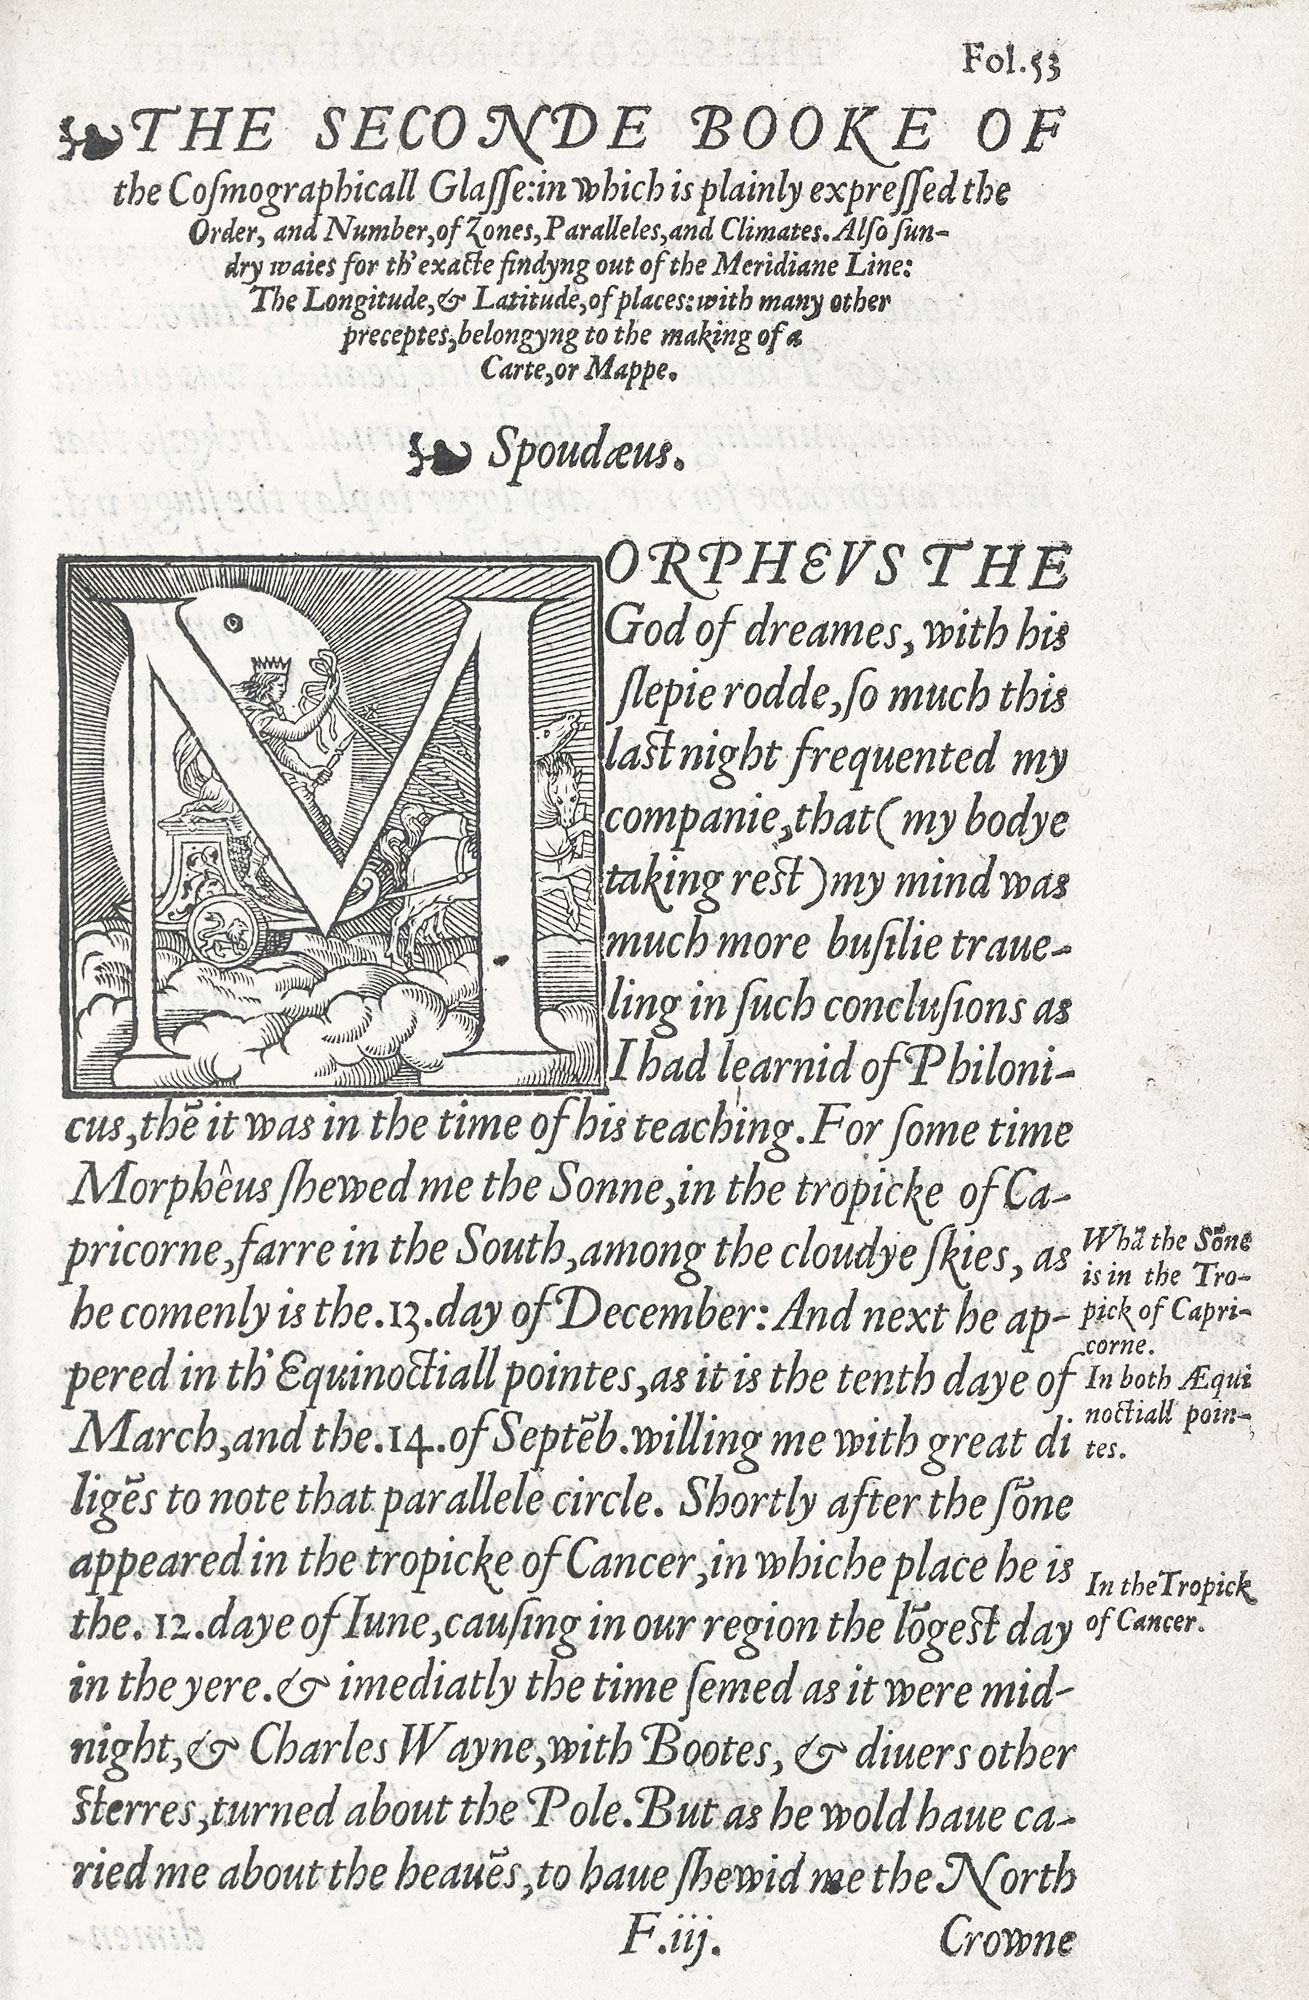 Fol.53
THE SECONDE BOOKE OF
the Coſmographicall Glaſſe:in which is plainly expreſſed the
Order, and Number,of Zones,Paralleles,and Climates. Alſo ſun-
dry waies for th'exacte findyng out of the Meridiane Line:
The Longitude,& Latitude,of places:with many other
preceptes,belongyng to the making of a
Carte,or Mappe.
Spoudæus.
MORPHEVS THE
God of dreames, with his
ſlepie rodde,ſo much this
laſt night frequented my
companie,that( my bodye
taking reſt )my mind was
much more buſilie traue-
ling in ſuch concluſions as
I had learnid of Philoni-
cus,thē it was in the time of his teaching. For ſome time
Morphêus ſhewed me the Sonne,in the tropicke of Ca-
pricorne,farre in the South,among the cloudye ſkies, as
he comenly is the.13.day of December: And next he ap-
pered in th'Equinoctiall pointes,as it is the tenth daye of
March,and the.14.of Septēb.willing me with great di
ligēs to note that parallele circle. Shortly after the ſōne
appeared in the tropicke of Cancer,in whiche place he is
the. 12.daye of Iune,cauſing in our region the lōgeſt day
in the yere.& imediatly the time ſemed as it were mid-
night,& Charles Wayne,with Bootes, & diuers other
ſterres,turned about the Pole.But as he wold haue ca-
ried me about the heauēs,to haue ſhewid me the North
F.iij. Crowne
Whā the Sōne
is in the Tro-
pick of Capri-
corne.
In both Æqui
noctiall poin-
tes.
In the Tropick
of Cancer.